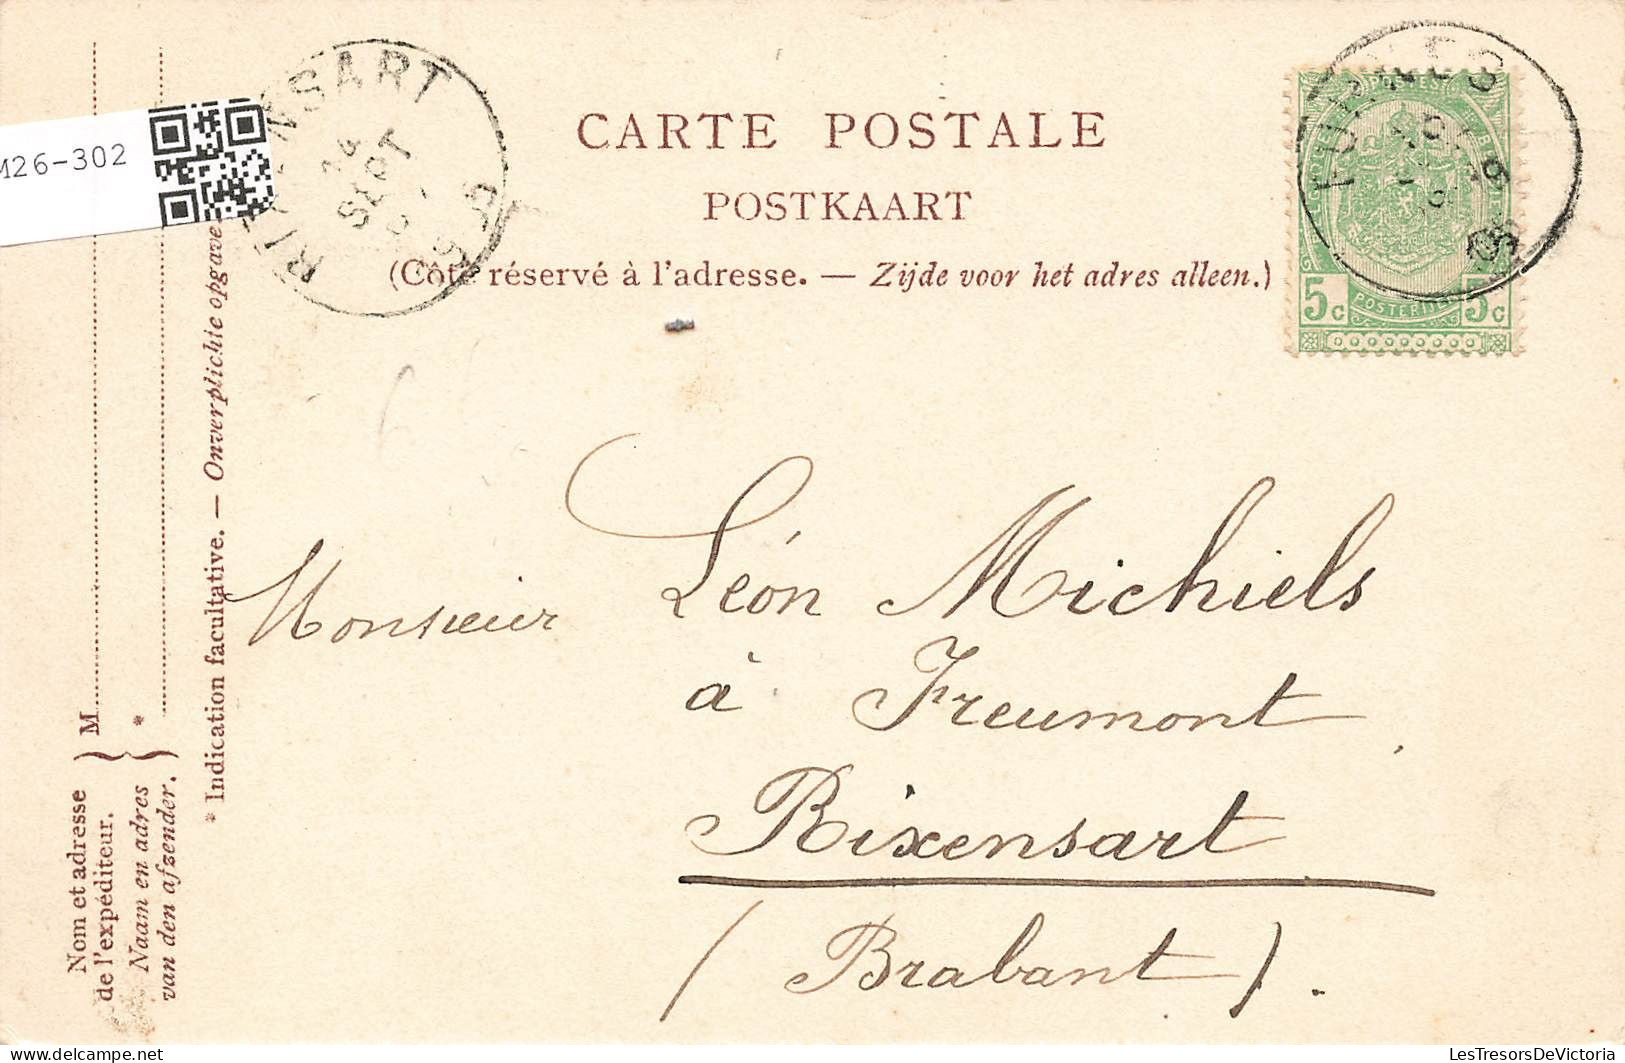 CARTE POSTALE
POSTKAART
(Côté réservé à l'adresse. — Zijde voor het adres alleen.)
M26-302
RIXENSART
24
SEPT
FURNES
POSTES
5c POSTERIJEN 5c
Monsieur Léon Michiels
à Freumont
Rixensart
(Brabant).
Nom et adresse
de l'expéditeur.
Naam en adres
van den afzender.
M
*
* Indication facultative. — Onverplichte opgave
LesTresorsDeVictoria